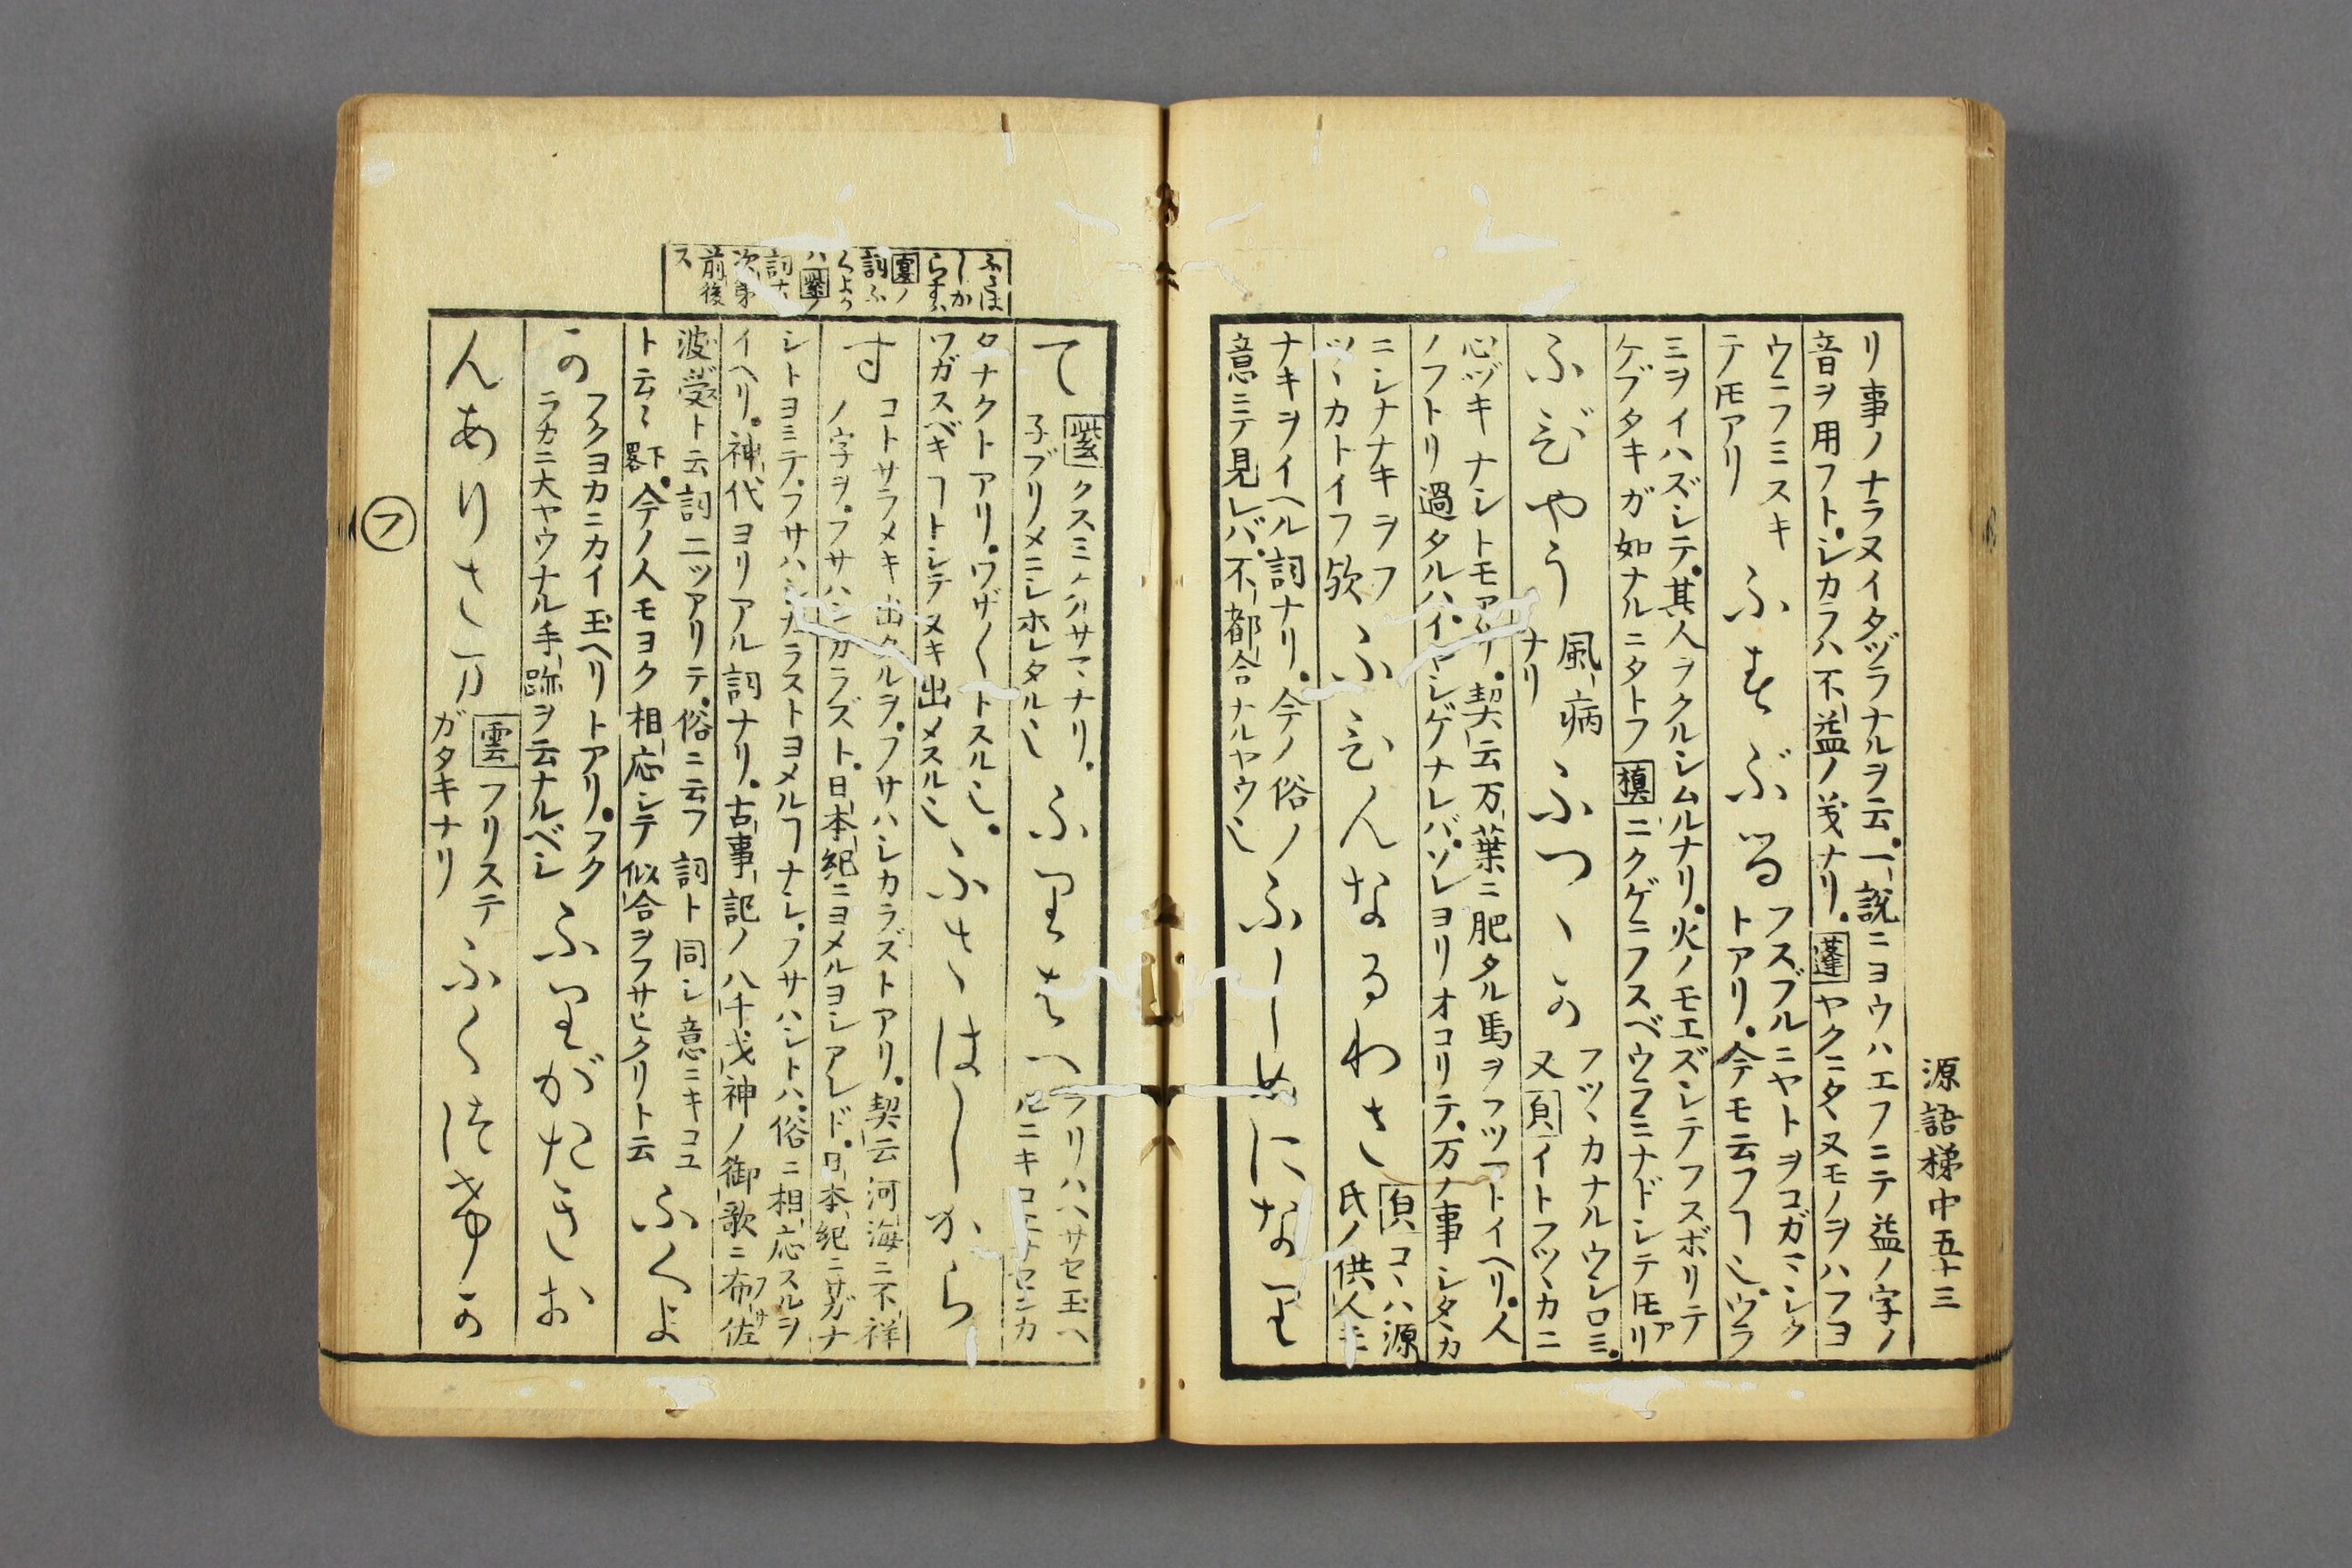 源語梯中五十三
リ事ノナラヌイタヅラナルヲ云。一説ニヨウハエフニテ益ノ字ノ
音ヲ用フト。シカラハ不益ノ義ナリ。蓬ヤクニタヽヌモノヲハフヨ
ウニフミスキ
テ𪜈アリ
ふすぶる
フスブルニヤトヲコガマシク
トアリ。今モ云フヿ也。ウラ
ミヲイハズシテ。其人ヲクルシムルナリ。火ノモエズシテフスボリテ
ケブタキガ如ナルニタトフ槙ニクゲニフスベウラミナドシテ𪜈アリ
ふびやう
風病
ナリ
ふつゝか
フツヽカナルウシロミ。
又㒵イトフツヽカニ
心ヅキナシトモアリ。契云万葉ニ肥タル馬ヲフツマトイヘリ。人
ノフトリ過タルハ。イヤシゲナレバ。ソレヨリオコリテ。万ナ事シタヽカ
ニシナナキヲフ
ツヽカトイフ欤
ふびんなるわさ
㒵コヽハ源
氏ノ供人モ
ナキヲイヘル詞ナリ。今ノ俗ノ
意ニテ見レバ。不都合ナルヤウ也
ふしゐになり
て
紫クスミタルサマナリ。
子ブリメニシホレタル也
ふりはへ
フリハヘサセ玉ヘ
ルニキコエサセンカ
タナクトアリ。ワザ〱トスル也。
ワガスベキヿトシテヌキ出メスル也
ふさはしから
す
コトサラメキ出タルヲ。フサハシカラズトアリ。契云河海ニ不祥
ノ字ヲ。フサハシカラズト。日本紀ニヨメルヨシアレド。日本紀ニサガナ
シトヨミテ。フサハシカラストヨメルヿナシ。フサハシトハ。俗ニ相応スルヲ
イヘリ。神代ヨリアル詞ナリ。古事記ノ八千戈神ノ御歌ニ布佐
波受ト云詞二ツアリテ。俗ニ云フ詞ト同シ意ニキコユ
ト云〻下畧。今ノ人モヨク相応シテ似合ヲフサヒクリト云
ふくよ
か
フクヨカニカイ玉ヘリトアリ。フク
ラカニ大ヤウナル手跡ヲ云ナルベシ
ふりがたきお
んありさま
雲フリステ
ガタキナリ
ふくつけか
ふさは
しか
らすハ
夏ノ
詞ふ
くよか
ハ紫ノ
詞ナ
次第
前後
ス
フ